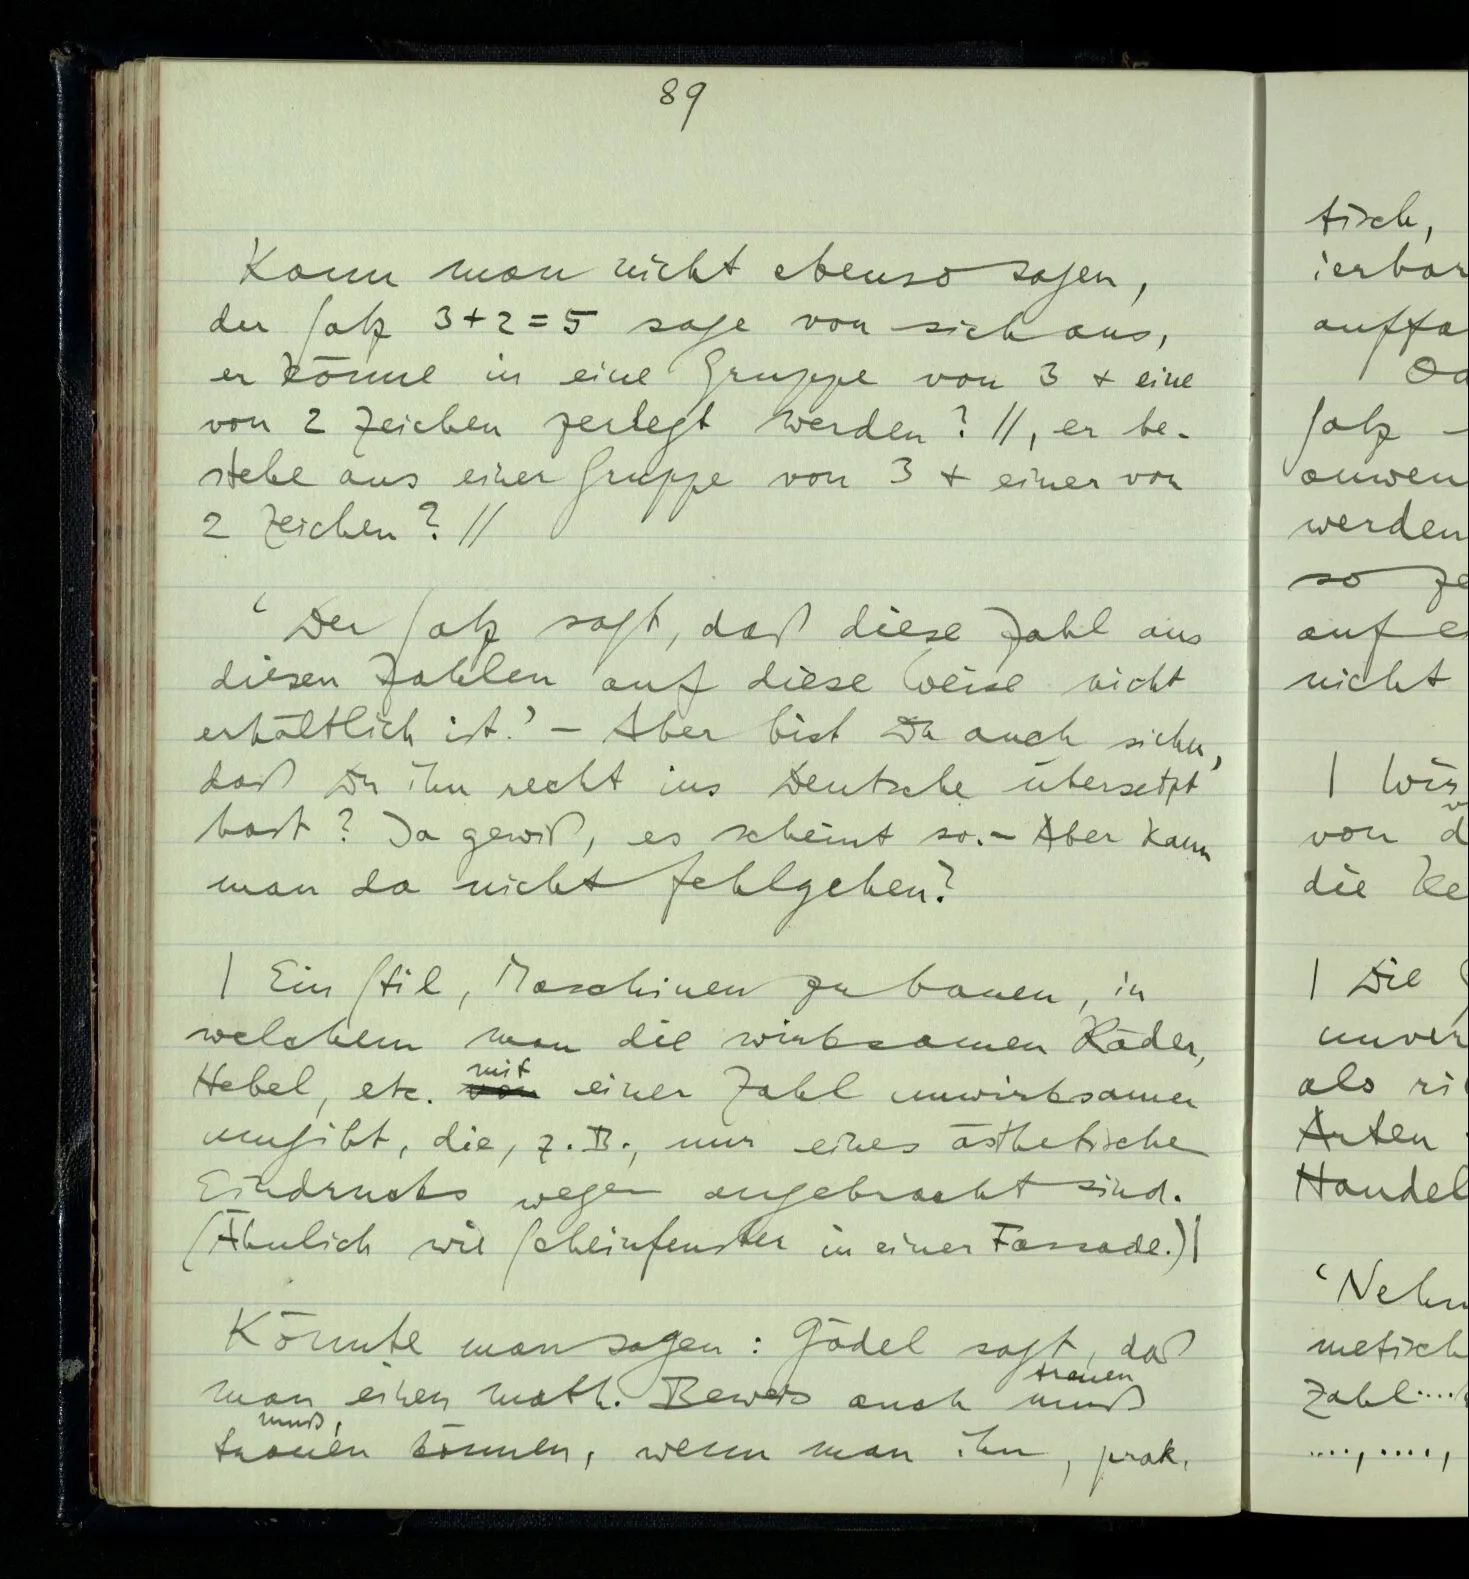 89
Kann man nicht ebenso sagen,
der Satz 3+2=5 sage von sich aus,
er könne in eine Gruppe von 3 + eine
von 2 Zeichen zerlegt werden? //, er be-
stehe aus einer Gruppe von 3 + einer von
2 Zeichen? //
‘Der Satz sagt, daß diese Zahl aus
diesen Zahlen auf diese Weise nicht
erhältlich ist.’ – Aber bist Du auch sicher,
daß Du ihn recht ins Deutsche übersetzt
hast? Ja gewiß, es scheint so. – Aber kann
man da nicht fehlgehen?
| Ein Stil, Maschinen zu bauen, in
welchem man die wirksamen Räder,
mit
Hebel, etc. von einer Zahl unwirksamer
umgibt, die, z.B., nur eines ästhetische
Eindrucks wegen angebracht sind.
(Ähnlich wie Scheinfenster in einer Fassade.)|
Könnte man sagen: Gödel sagt, daß
trauen
man einen math. Beweis auch muß
muß,
trauen können, wenn man ihn, prak.
tisch,
ierbar
auffa
Od
Satz –
anwen
werden
so ze
auf e
nicht
| Wir
von d
die Ke
| Die
unver
als ri
Arten
Handel
‘Nehm
metisch
Zahl....
...., ....,